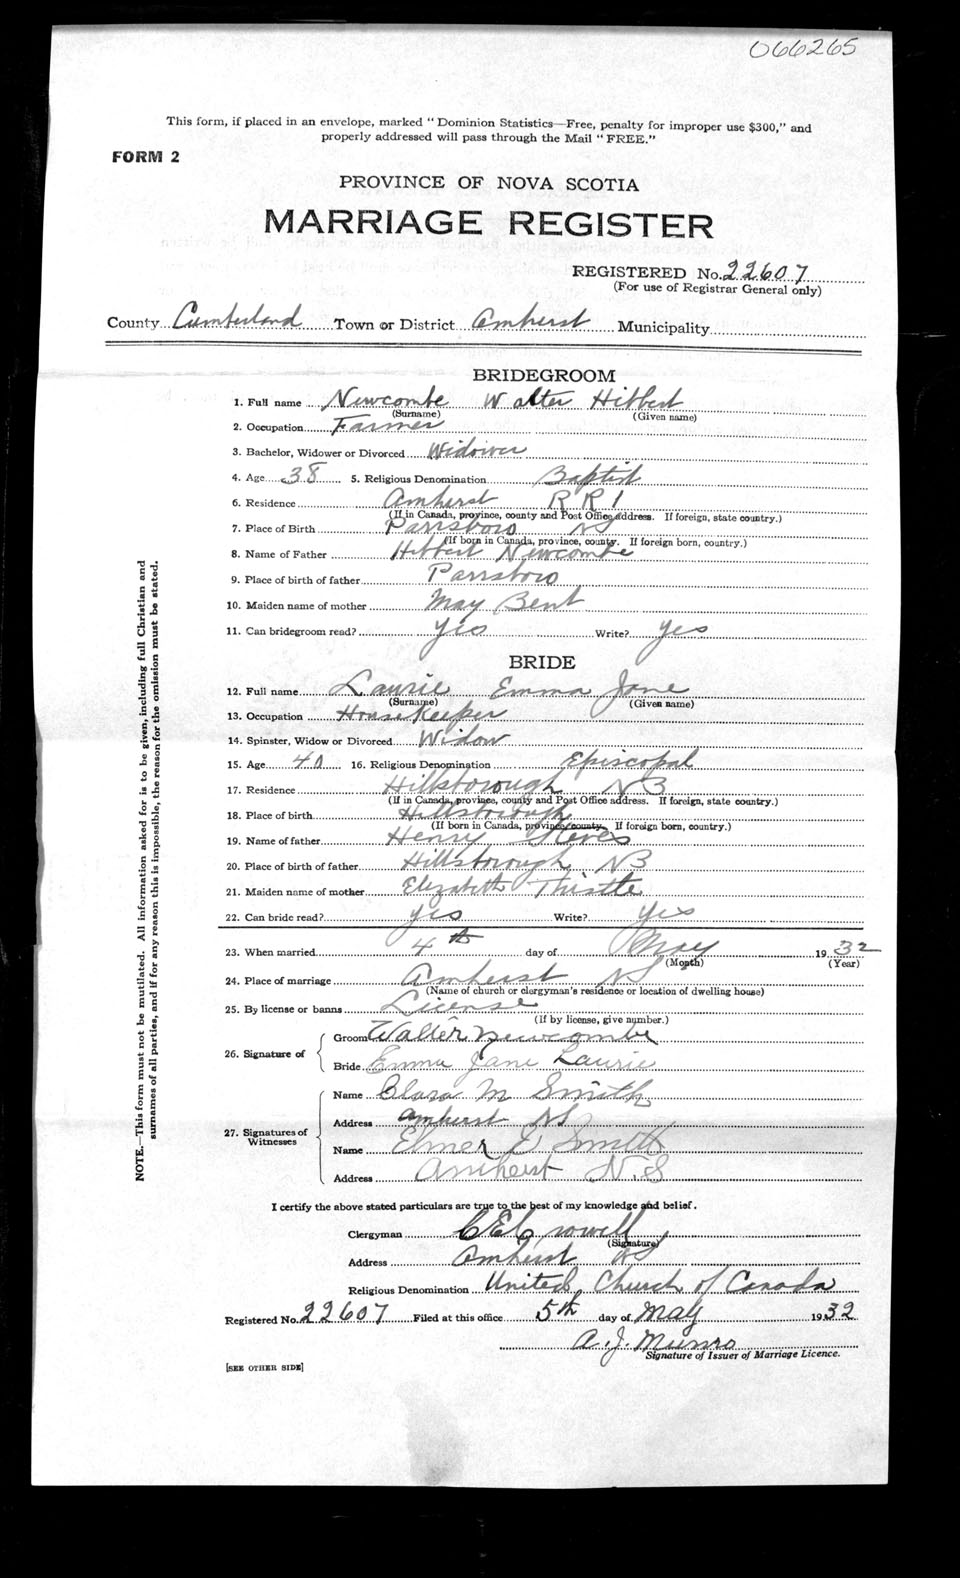 066265
This form, if placed in an envelope, marked "Dominion Statistics—Free, penalty for improper use $300," and
properly addressed will pass through the Mail "FREE."
FORM 2
PROVINCE OF NOVA SCOTIA
MARRIAGE REGISTER
REGISTERED No. 22607
(For use of Registrar General only)
County Cumberland Town or District Amherst Municipality
BRIDEGROOM
1. Full name Newcombe Walter Hibbert
(Surname) (Given name)
2. Occupation Farmer
3. Bachelor, Widower or Divorced Widower
4. Age 38 5. Religious Denomination Baptist
6. Residence Amherst R R 1
(If in Canada, province, county and Post Office address. If foreign, state country.)
7. Place of Birth Parrsboro NS
(If born in Canada, province, county. If foreign born, country.)
8. Name of Father Hibbert Newcombe
9. Place of birth of father Parrsboro
10. Maiden name of mother May Bent
11. Can bridegroom read? yes Write? yes
BRIDE
12. Full name Laurie Emma Jane
(Surname) (Given name)
13. Occupation Housekeeper
14. Spinster, Widow or Divorced Widow
15. Age 40 16. Religious Denomination Episcopal
17. Residence Hillsborough NB
(If in Canada, province, county and Post Office address. If foreign, state country.)
18. Place of birth Hillsborough
(If born in Canada, province, county. If foreign born, country.)
19. Name of father Henry Steves
20. Place of birth of father Hillsborough NB
21. Maiden name of mother Elizabeth Thistle
22. Can bride read? yes Write? yes
23. When married 4th day of May 1932
(Month) (Year)
24. Place of marriage Amherst NS
(Name of church or clergyman's residence or location of dwelling house)
25. By license or banns License
(If by license, give number.)
26. Signature of
Groom Walter Newcombe
Bride Emma Jane Laurie
27. Signatures of Witnesses
Name Clara M Smith
Address Amherst NS
Name Elmer E Smith
Address Amherst N.S
I certify the above stated particulars are true to the best of my knowledge and belief.
Clergyman C E Crowell
(Signature)
Address Amherst NS
Religious Denomination United Church of Canada
Registered No. 22607 Filed at this office 5th day of May 1932
A. J. Munro
Signature of Issuer of Marriage Licence.
[SEE OTHER SIDE]
NOTE.—This form must not be mutilated. All information asked for is to be given, including full Christian and
surnames of all parties, and if for any reason this is impossible, the reason for the omission must be stated.